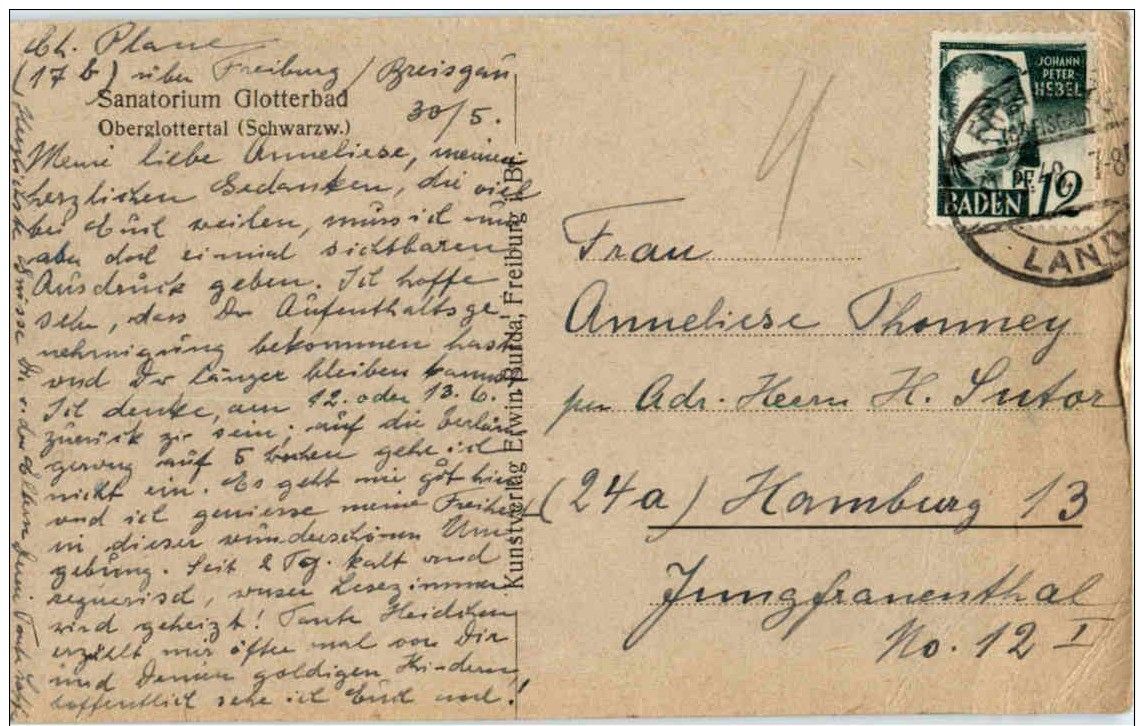 (17b) über Freiburg / Breisgau
Sanatorium Glotterbad
Oberglottertal (Schwarzw.)
30/5.
Meine liebe Anneliese, meinen
herzlichen Gedanken, die viel
bei Euch weilen, muss ich nun
aber doch einmal sichtbaren
Ausdruck geben. Ich hoffe
sehr, dass Du Aufenthaltsge-
nehmigung bekommen hast
und Du länger bleiben kannst.
Ich denke, am 12. oder 13. 6.
zurück zu sein, auf die Verlän
gerung auf 5 Wochen gehe ich
nicht ein. Es geht mir gut hier
und ich geniesse meine Freiheit
in dieser wunderschönen Um
gebung. Seit 2 Tg. kalt und
regnerisch, unser Lesezimmer
wird geheizt! Tante Heidchen
erzählt mir öfter mal von Dir
und Deinen goldigen Kindern,
hoffentlich sehe ich Euch noch!
Herzlichste Grüsse Dir u. den Eltern Deine Tante
Kunstverlag Erwin Burda, Freiburg i. Br.
JOHANN
PETER
HEBEL
BADEN PF. 12
LAND
Frau
Anneliese Thonney
per Adr. Herrn H. Sutor
(24a) Hamburg 13
Jungfrauenthal
No. 12 I